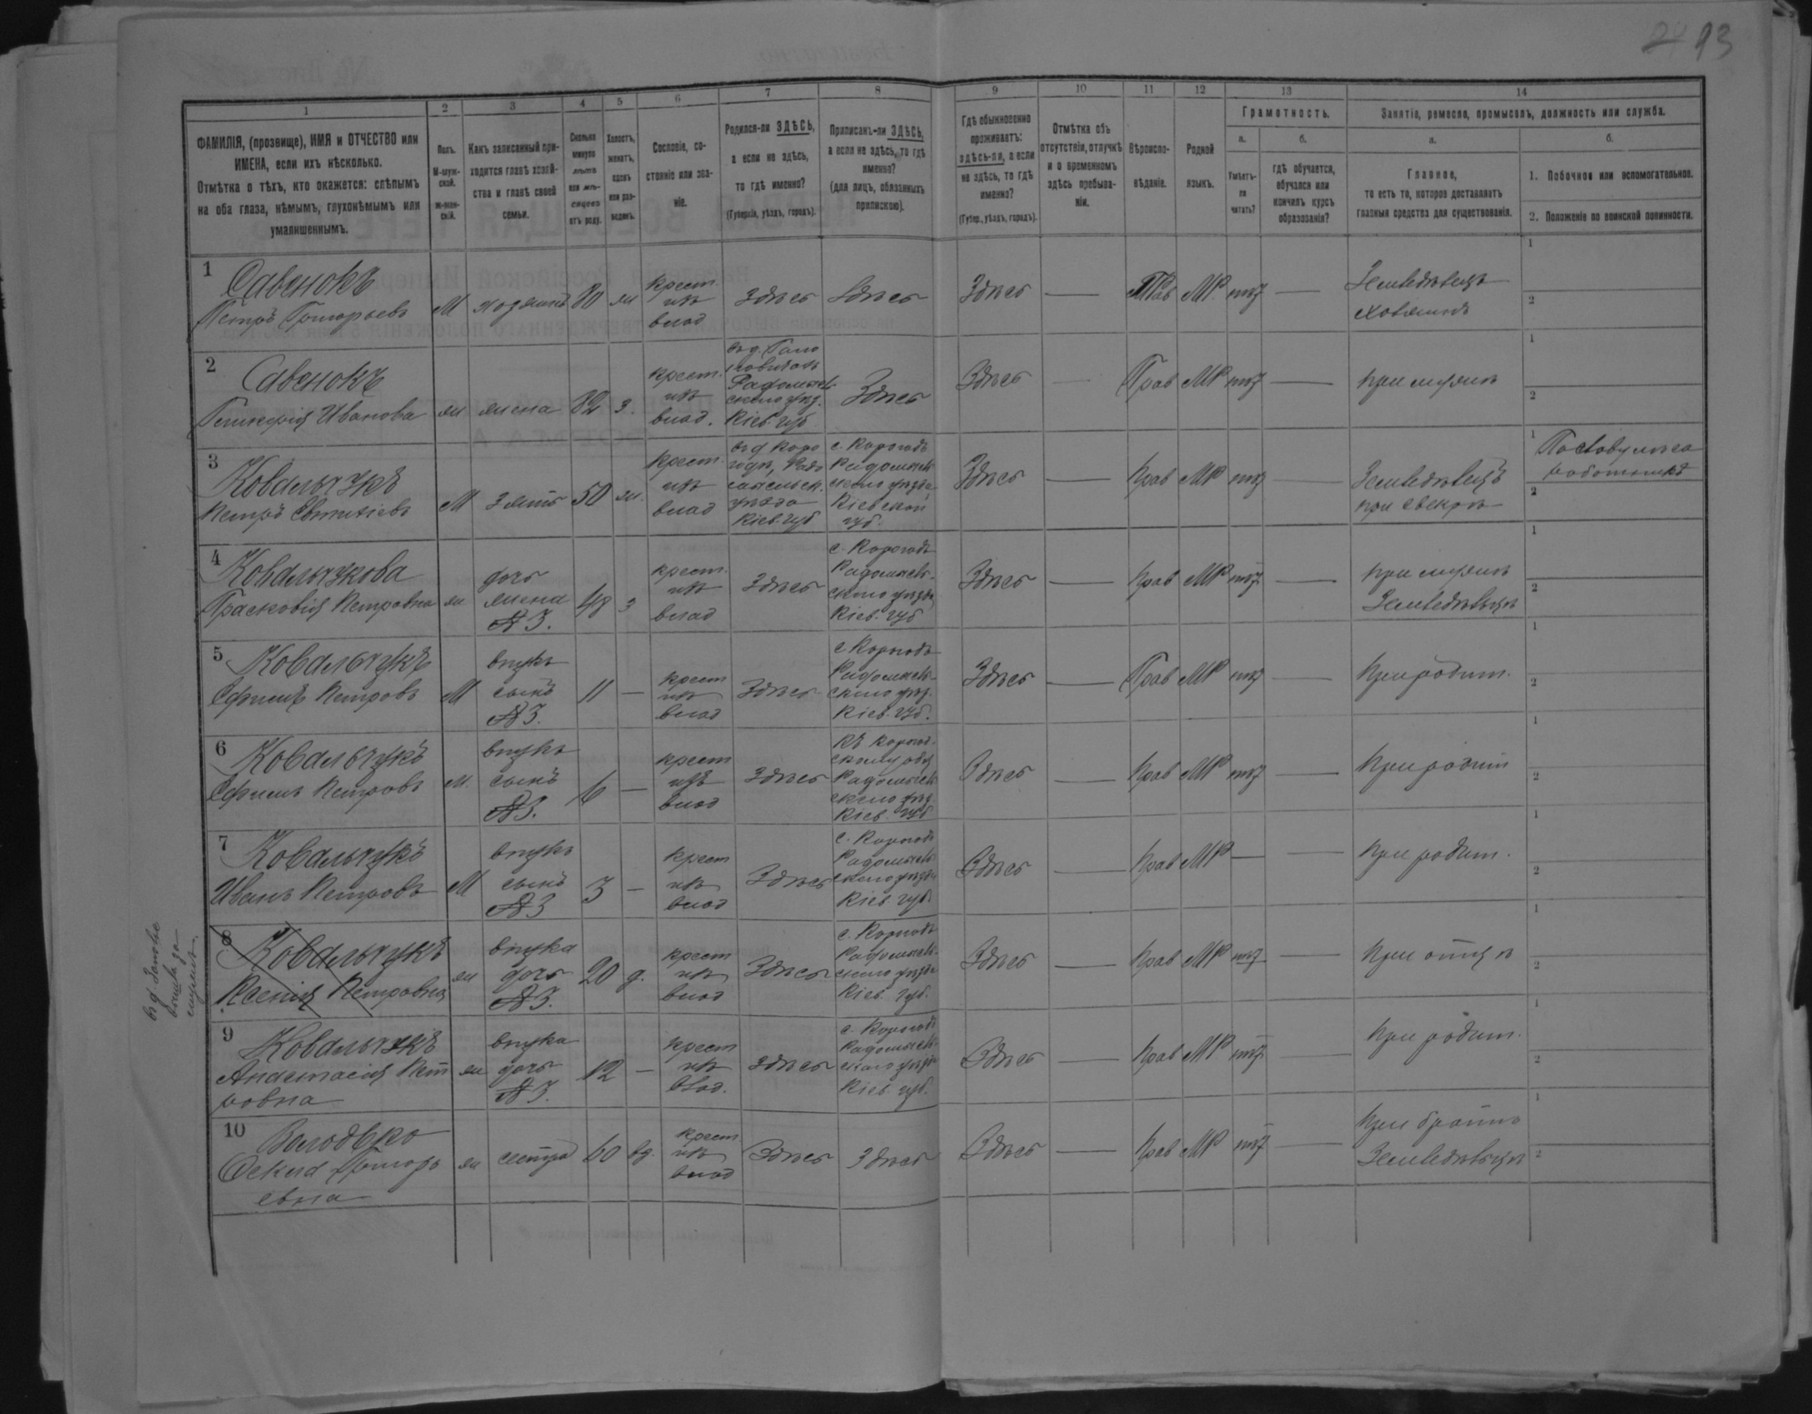 13
1 2 3 4 5 6 7 8 9 10 11 12 13 14
ФАМИЛІЯ, (прозвище), ИМЯ и ОТЧЕСТВО или
ИМЕНА, если ихъ нѣсколько.
Отмѣтка о тѣхъ, кто окажется: слѣпымъ
на оба глаза, нѣмымъ, глухонѣмымъ или
умалишеннымъ.
Полъ.
М-муж-
ской.
Ж-жен-
скій.
Какъ записанный при-
ходится главѣ хозяй-
ства и главѣ своей
семьи.
Сколько
минуло
лѣтъ
или мѣ-
сяцевъ
отъ роду.
Холостъ,
женатъ,
вдовъ
или раз-
веденъ.
Сословіе, со-
стояніе или зва-
ніе.
Родился-ли ЗДѢСЬ,
а если не здѣсь,
то гдѣ именно?
(Губернія, уѣздъ, городъ).
Приписанъ-ли ЗДѢСЬ,
а если не здѣсь, то гдѣ
именно?
(для лицъ, обязанныхъ
припискою).
Гдѣ обыкновенно
проживаетъ:
здѣсь-ли, а если
не здѣсь, то гдѣ
именно?
(Губер., уѣздъ, городъ).
Отмѣтка объ
отсутствіи, отлучкѣ
и о временномъ
здѣсь пребыва-
ніи.
Вѣроиспо-
вѣданіе.
Родной
языкъ.
Грамотность.
а.
Умѣетъ-
ли
читать?
б.
гдѣ обучается,
обучался или
кончилъ курсъ
образованія?
Занятіе, ремесло, промыселъ, должность или служба.
а.
Главное,
то есть то, которое доставляетъ
главныя средства для существованія.
б.
1. Побочное или вспомогательное.
2. Положеніе по воинской повинности.
1 Савенокъ
Петръ Григорьевъ М хозяинъ 80 ж крест.
изъ
влад Здѣсь Здѣсь Здѣсь — Прав МР нѣт — Земледѣлецъ
хозяинъ
2 Савенокъ
Иванова ж жена 82 з. крест.
изъ
влад.
Радомысль
скаго уѣзд.
Кіев. губ Здѣсь Здѣсь — Прав МР нѣт — при мужѣ
3 Ковальчукъ
Петръ М зять 50 ж. крест.
изъ
влад
уѣзда
Кіев. губ
с. Корогодъ
Радомысль
скаго уѣзда
Кіевской
губ. Здѣсь — Прав МР нѣт — Земледѣлецъ
при свекрѣ
4 Ковальчукова
Прасковія Петровна ж дочь
жена
№ 3. 48 з крест.
изъ
влад Здѣсь с. Корогодъ
Радомысль-
скаго уѣзда
Кіев. губ Здѣсь — Прав МР нѣт — при мужѣ
Земледѣльцѣ
5 Ковальчукъ
Ефимъ Петровъ М внукъ
сынъ
№ 3. 11 — крест
изъ
влад Здѣсь с Корогодъ
Радомысль-
скаго уѣзд.
Кіев. губ. Здѣсь — Прав МР нѣт — При родит.
6 Ковальчукъ
Ефимъ Петровъ М. внукъ
сынъ
№ 3. 6 — крест
изъ
влад Здѣсь
Радомысль
скаго уѣзд
Кіев. губ Здѣсь — Прав МР нѣт — При родит
7 Ковальчукъ
Иванъ Петровъ М внукъ
сынъ
№ 3 3 — крест
изъ
влад Здѣсь с. Корогодъ
Радомысль
скаго уѣзда
Кіев. губ. Здѣсь — Прав МР — — При родит.
8 Ковальчукъ
Ксенія Петровна ж внука
дочь
№ 3. 20 д. крест
изъ
влад Здѣсь с. Корогодъ
Радомысль
скаго уѣзда
Кіев. губ. Здѣсь — Прав МР нѣт — При отцѣ
9 Ковальчукъ
Анастасія Пет
ровна ж внука
дочь
№ 3. 12 — крест
изъ
влад. Здѣсь с. Корогодъ
Радомысль
скаго уѣзда
Кіев. губ. Здѣсь — Прав МР нѣт — При родит.
10 Володько
Григорь
евна ж сестра 60 вд. крест
изъ
влад Здѣсь Здѣсь Здѣсь — Прав МР нѣт — При братѣ
Земледѣльцѣ